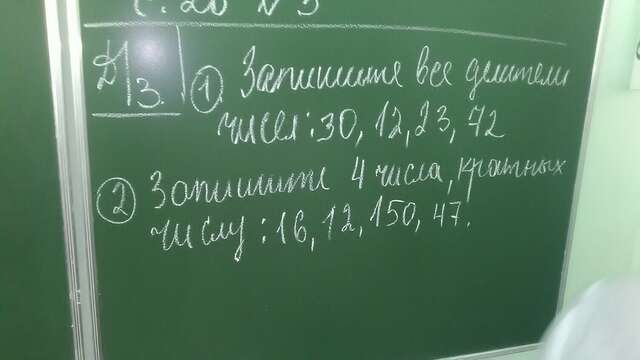 с. 20 №5
Д/З. ① Запишите все делители
чисел: 30, 12, 23, 72
② Запишите 4 числа, кратных
числу: 16, 12, 150, 47.